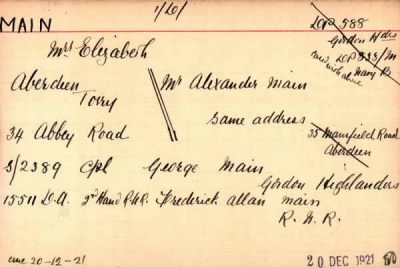 1/20/
MAIN
DGP 588
Gordon Hdrs
DGP 535/M
Navy Rs
Mrs Elizabeth
Aberdeen
Torry
Mr Alexander Main
34 Abbey Road
same address
35 Mansfield Road
Aberdeen
S/2389 Cpl George Main
Gordon Highlanders
15511 D.A. 2nd Hand R.N.R. Frederick Allan Main
R.N.R.
20-12-21
20 DEC 1921